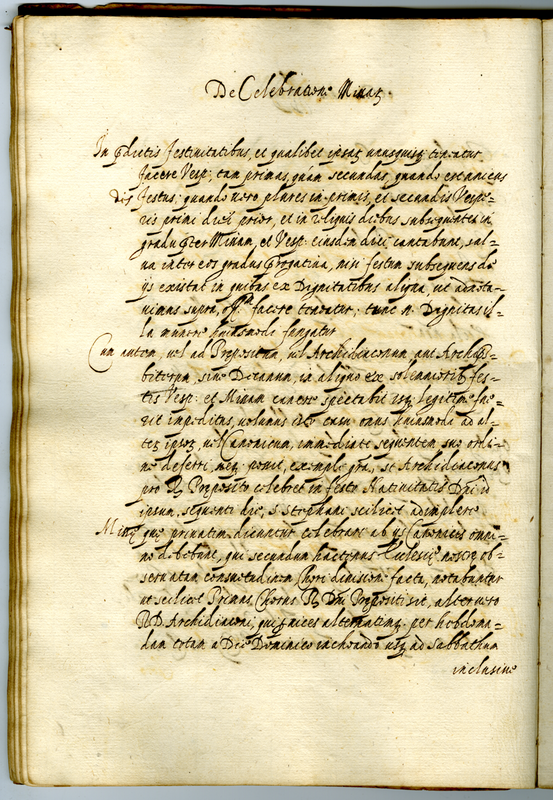 De Celebratione Missaꝝ
In p̄dictis festiuitatibus, et qualibet ipsaꝝ unusquisq; teneatur
facere Vesp: tam primas, quam secundas, quando est unicus
festus; quando uero plures in primis, et secundis Vespe=
ris primi diei prior, et in reliquis diebus subsequentes in
gradu p̄ter Missam, et Vesp: eiusdem diei cantabunt, sal=
ua inter eos gradus p̄rogatiua, nisi festum subsequens de
ijs existat in quibus ex Dignitatibus aliqua, ut adnota=
uimus supra, off.^m facere teneatur; tunc n. Dignitas il=
la munere huiusmodi fungatur
Cum autem, uel ad Prepositum, uel Archidiaconum, aut Archip̄s=
biterum, siue Decanum, in aliquo ex solemniorib; fes=
tis Vesp: et Missam canere spectabit isq; legitime fue=
rit impeditus, uolumus eo casu onus huiusmodi ad al=
teꝝ ipsoꝝ, uel Canonicum, immediate sequentem suo ordi=
ne deferri, neq; possit, exempli gra, si Archidiaconus
pro R. Preposito celebret in festo Natiuitatis Dni id
ipsum, sequenti die, S. Stephani scilicet adimplere
Missę quę priuatim dicuntur celebrari ab ijs Canonicis omni=
no debebunt, qui secundum hactenus Ecclesię nostrę ob=
seruatam consuetudinem Chori diuisione facta, notabuntur
ut scilicet Primus Chorus R. Dni Prepositi sit, alter uero
R. D. Archidiaconi; qui uices alternatim per hebdoma=
dam totam a Die Dominico inchoando usq; ad Sabbathum
inclusiue